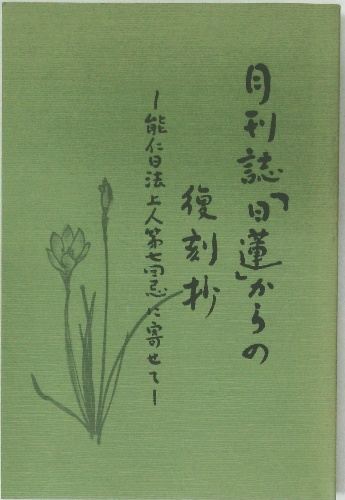 月刊誌「日蓮」からの
復刻抄
ー能仁日法上人第七回忌に寄せてー